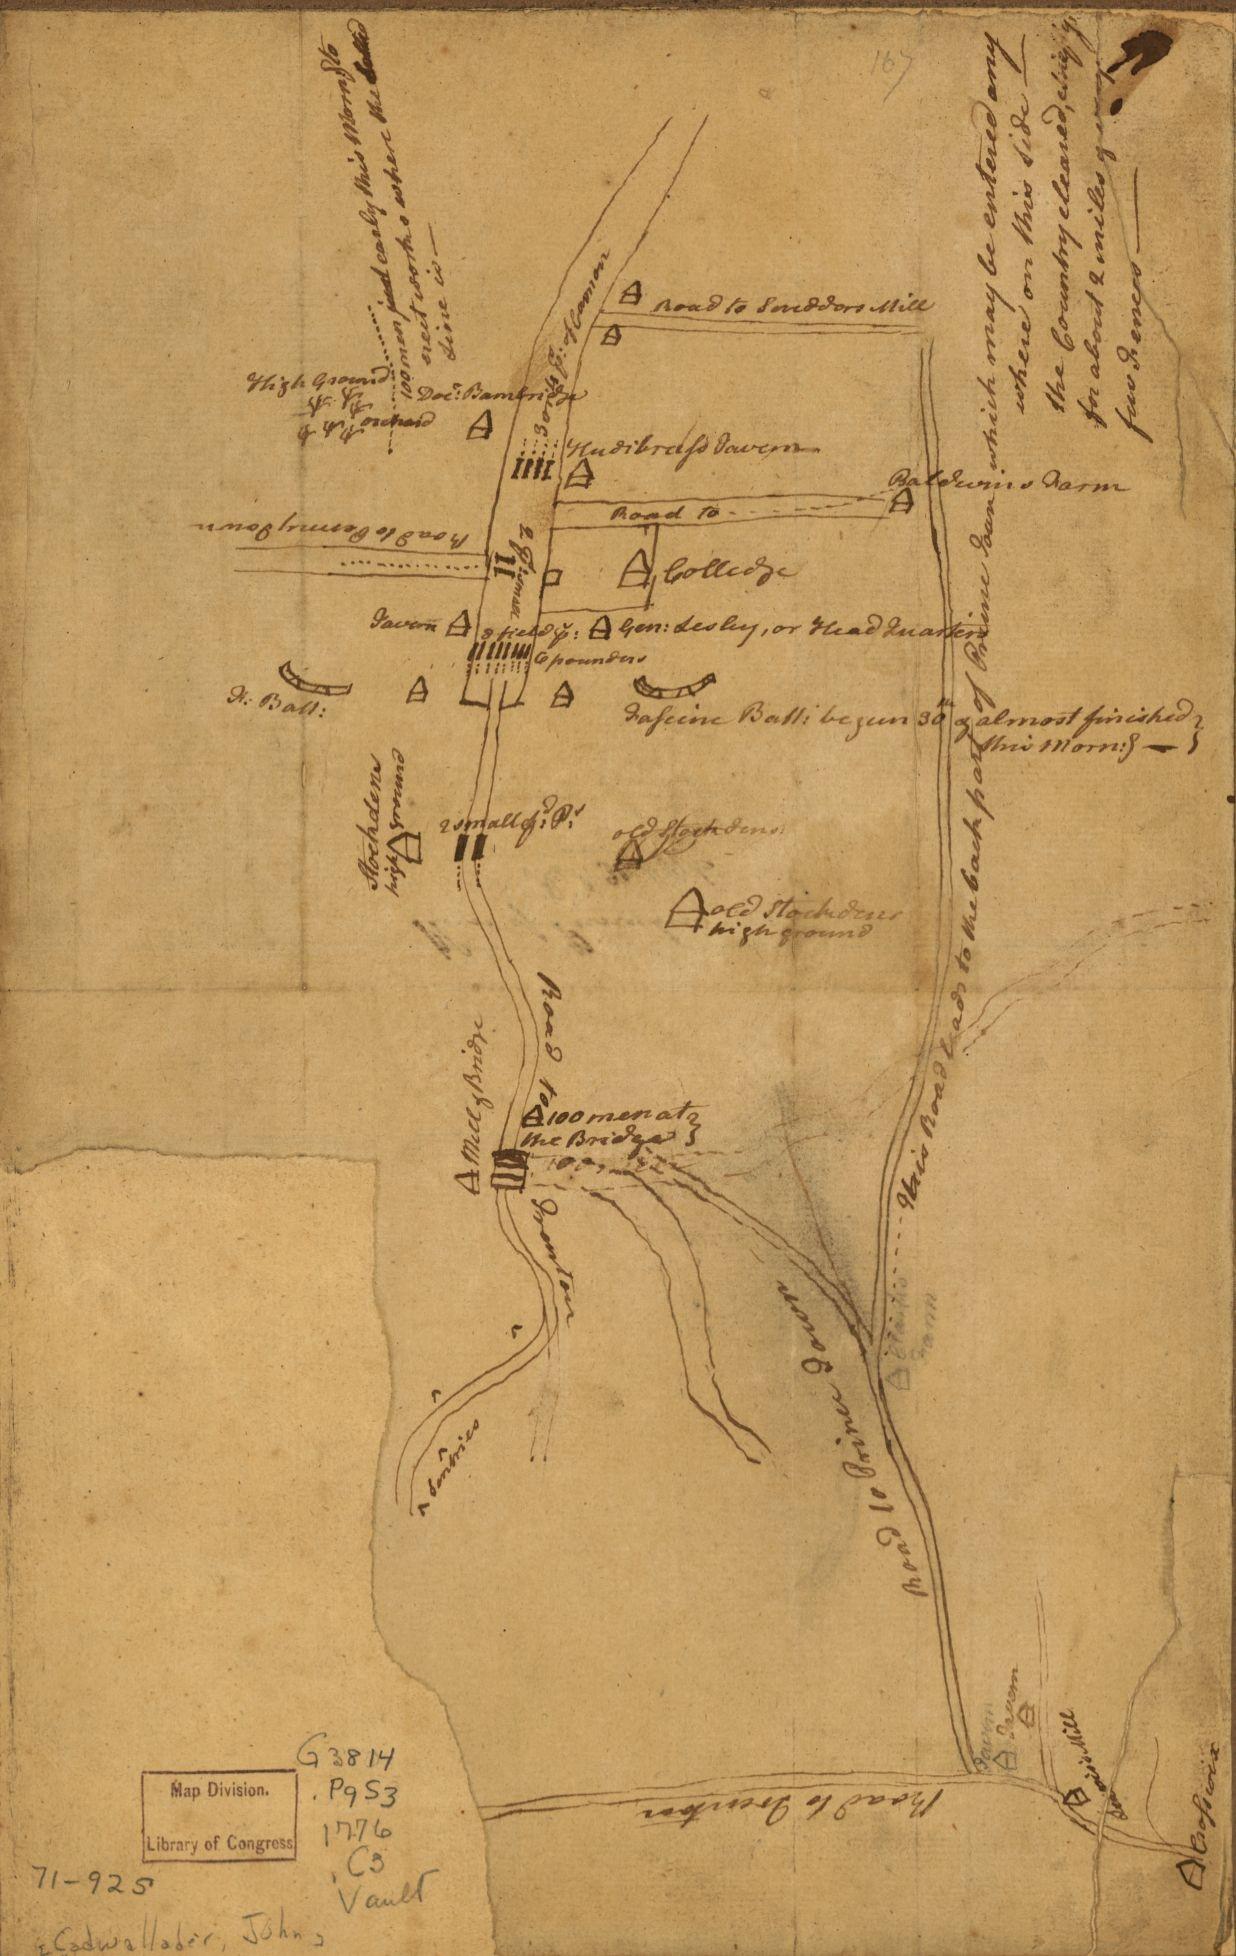 167
100 men early this Morng to
erect works where the dotted
line is —
which may be entered any
where on this side —
the Country cleared, chiefly,
for about 2 miles
few Fences —
This Road leads to the back part of Prince Town
30 ps: of Cannon
Road to Scudders Mill
High Ground
Orchard
Docr: Bambridge
Hudibrass Tavern
Baldwins Farm
Road to
Road to Pennytown
2 Ps: Cannon
Colledge
Tavern
8 field ps:
6 pounders
Gen: Lesley, or Head Quarters
F: Batt:
Fascine Batt: begun 30th & almost finished
this Morng —
Stockdens
high ground
2 small fd: Ps
old Stockdens
old Stockdens
high ground
Road to
Mill & Bridge
100 men at
the Bridge
100
Trenton
Sentries
Clarks
Farm
Road to Prince Town
Tavern
Tavern
Mill
Road to Trenton
Crosswix
Map Division.
Library of Congress
G3814
.P9S3
1776
.C3
Vault
71-925
Cadwallader, John